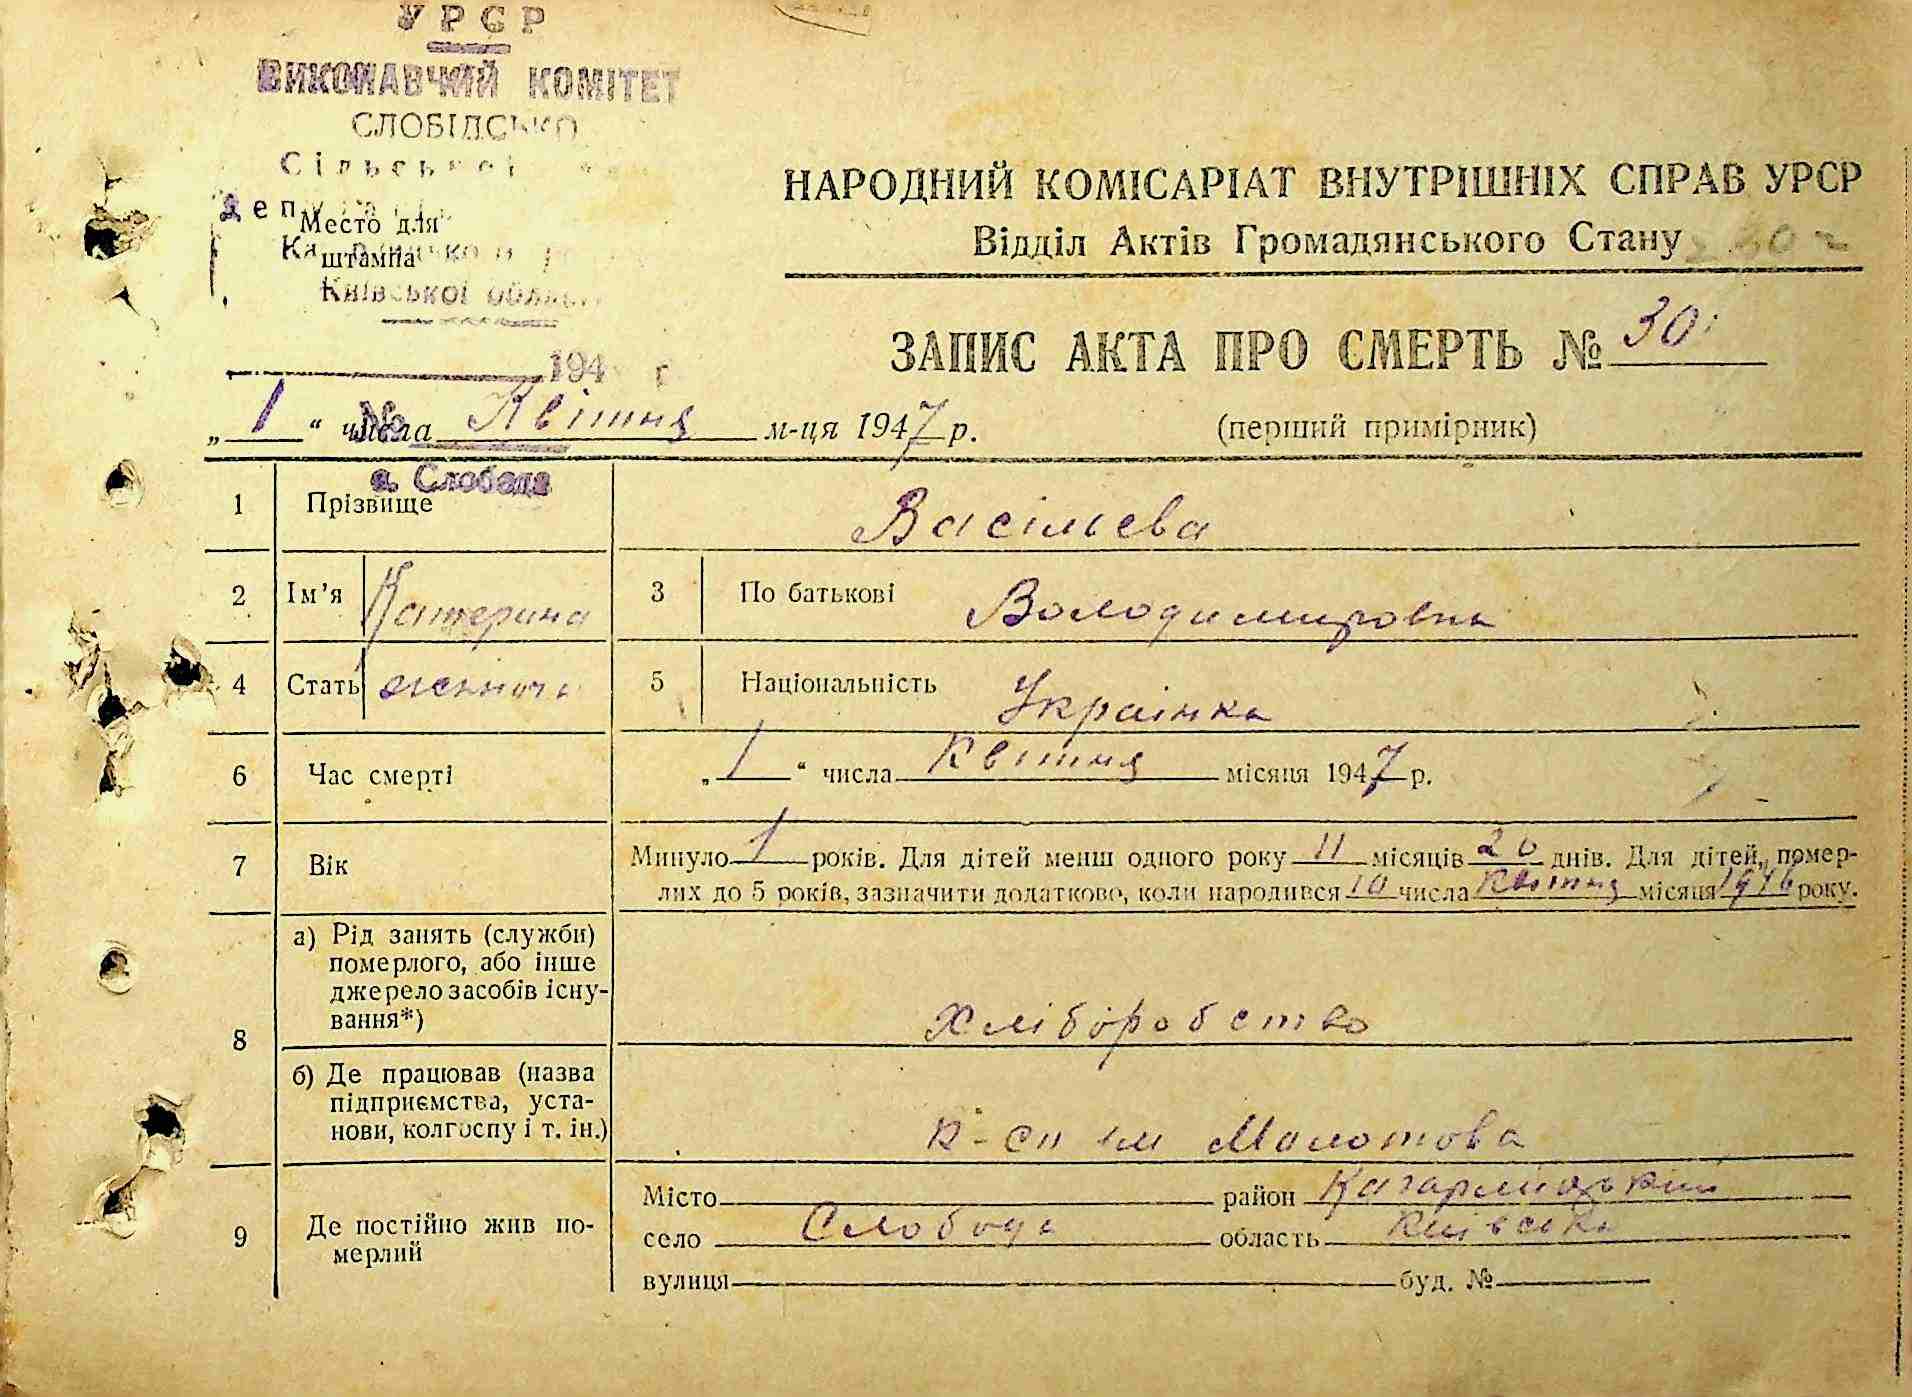 УРСР
ВИКОНАВЧИЙ КОМІТЕТ
СЛОБІДСЬКО
Сільської
Место для
штампа
Київської
194 г
НАРОДНИЙ КОМІСАРІАТ ВНУТРІШНІХ СПРАВ УРСР
Відділ Актів Громадянського Стану
ЗАПИС АКТА ПРО СМЕРТЬ № 30
№
„1“ числа Квітня м-ця 1947 р. (перший примірник)
с. Слобода
1 Прізвище Васільєва
2 Ім’я Катерина 3 По батькові Володимировна
4 Стать жіноча 5 Національність Українка
6 Час смерті „1“ числа Квітня місяця 1947 р.
7 Вік Минуло 1 років. Для дітей менш одного року 11 місяців 20 днів. Для дітей, помер-
лих до 5 років, зазначити додатково, коли народився 10 числа Квітня місяця 1946 року.
8 а) Рід занять (служби)
померлого, або інше
джерело засобів існу-
вання*)
Хліборобство
б) Де працював (назва
підприємства, уста-
нови, колгоспу і т. ін.)
к-сп ім Молотова
9 Де постійно жив по-
мерлий
Місто район Кагарлицький
село Слобода область Київська
вулиця буд. №